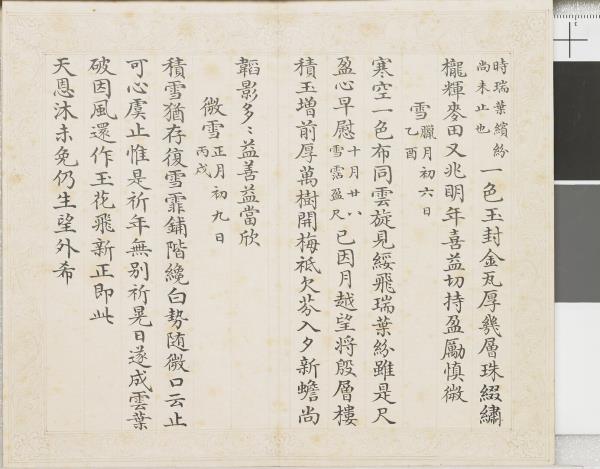 時瑞葉繽紛尚未止也一色玉封金瓦厚幾層珠綴繡
櫳輝麥田又兆明年喜益切持盈勵慎微
雪臘月初六日乙酉
寒空一色布同雲旋見綏飛瑞葉紛雖是尺
盈心早慰十月廿八雪霑盈尺已因月越望將殷層樓
積玉增前厚萬樹開梅祗欠芬入夕新蟾尚
韜影多〻益善益當欣
微雪正月初九日丙戌
積雪猶存復雪霏鋪階纔白勢随微口云止
可心虞止惟是祈年無别祈晃日遂成雲葉
破因風還作玉花飛新正即此
天恩沐未免仍生望外希